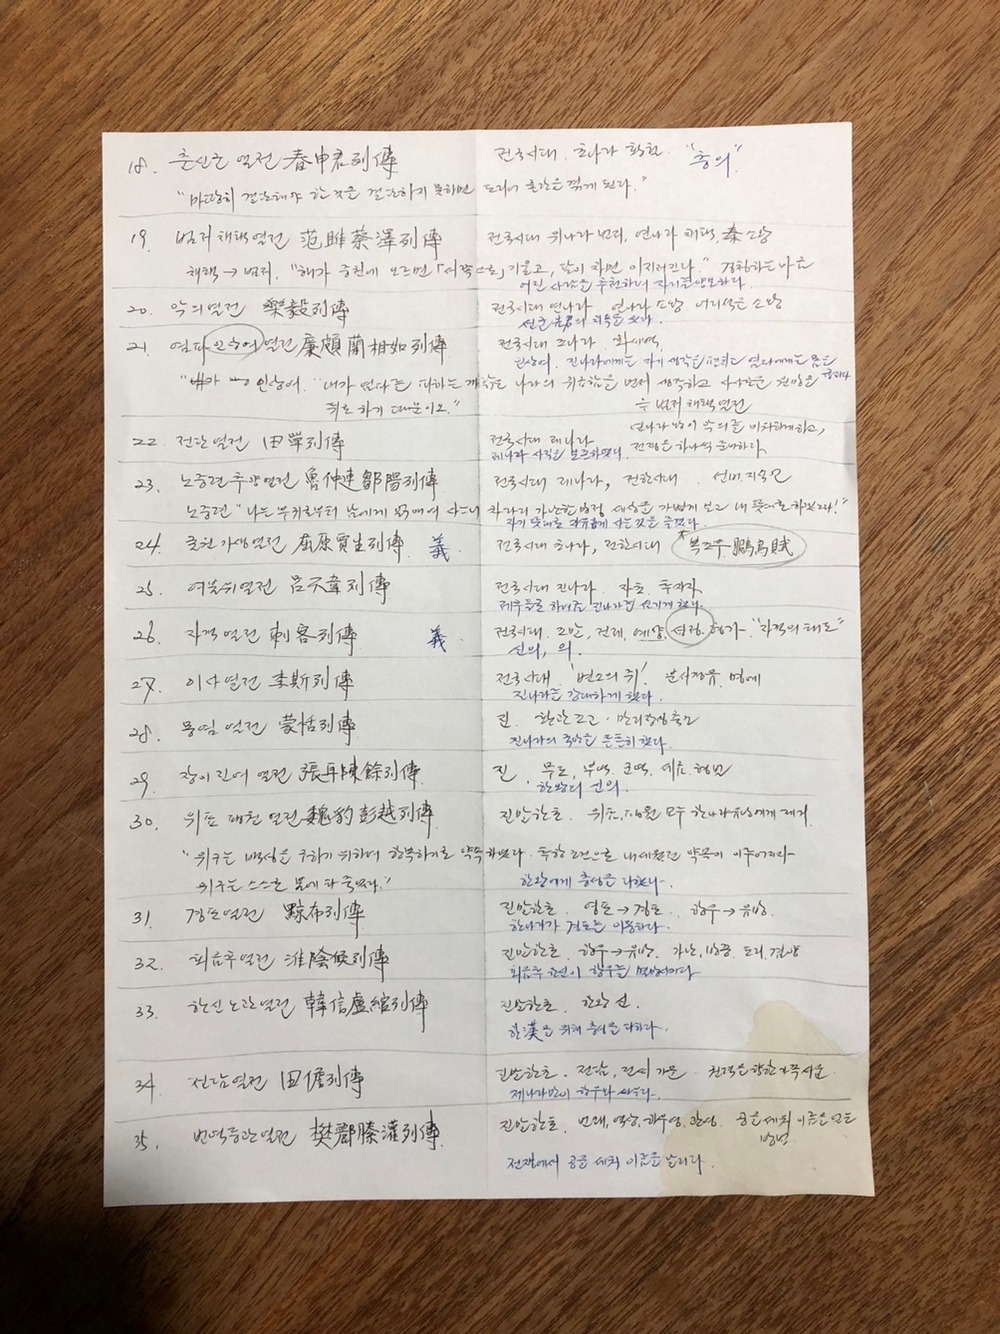 18. 춘신군 열전 春申君列傳 전국시대. 초나라 황헐 "충의"
"마땅히 결단해야 할 것을 결단하지 못하면 도리어 혼란을 겪게 된다."
19. 범저 채택 열전 范雎蔡澤列傳 전국시대 위나라 범저, 연나라 채택, 秦 소왕
채택 → 범저, "해가 중천에 오르면 「서쪽으로」 기울고, 달이 차면 이지러진다." 경청하는 마음
어진 사람을 추천하며 자기를 양보하다.
20. 악의열전 樂毅列傳 전국시대 연나라 연나라 소왕 어리석은
선군 의
21. 염파 인상여 열전 廉頗藺相如列傳 전국시대 조나라 화씨벽
인상여. 진나라에게는 자기 생각을 펼치고 염파에게는 몸을
인상여. "내가 염파를 피하는 까닭은 나라의 위급함을 먼저 생각하고 사사로운 원망을
뒤로 하기 때문이오." ≒ 범저 채택 열전
22. 전단 열전 田單列傳 전국시대 제나라
제나라 사직을 보존하였다.
연나라 많이 속의를 미치하게하고,
전쟁을 하나씩 준비하다.
23. 노중련 추양열전 魯仲連鄒陽列傳 전국시대 제나라, 전한시대. 선비
노중련 "나는 부귀로부터 남에게 얽매여 사느니 차라리 가난할망정 세상을 가볍게 보고 내 뜻대로 하겠노라!"
자기 뜻대로 자유롭게 사는 것을 즐겼다.
24. 굴원 가생열전 屈原賈生列傳. 義 전국시대 초나라, 전한시대 *복조부 鵬鳥賦
25. 여불위열전 呂不韋列傳 전국시대 진나라. 자초 투자자
제후들로 하여금 진나라를 섬기게 했다.
26. 자객 열전 刺客列傳 義 전국시대. 조말, 전제, 예양, 섭정, 형가. "자객의 태도"
신의, 의.
27. 이사열전 李斯列傳 전국시대 '변소의 쥐'. 분서갱유. 멍에
진나라를 강대하게 했다.
28. 몽염 열전 蒙恬列傳 진. 환관 조고. 만리장성 축조
진나라의 국방을 튼튼히 했다.
29. 장이 진여 열전 張耳陳餘列傳 진. 무신, 무력.
한왕의 신의.
30. 위표 팽월 열전 魏豹彭越列傳 진말한초. 위표, 팽월 모두 한나라 유방에게 제거
"위구는 백성을 구하기 위하여 항복하기로 약속하였다. 록한 조건으로 내세웠던 약속이 이루어지자
위구는 스스로 몸에 타 죽었다." 한왕에게 충성을 다했다.
31. 경포열전 黥布列傳 진말한초. 영포 → 경포. 항우 → 유방.
한나라가 경포를 이용하다.
32. 회음후열전 淮陰侯列傳 진말한초. 항우 → 유방. 가난, 방종. 도리, 겸양
회음후 한신이 항우를 멸망시키다.
33. 한신 노관 열전 韓信盧綰列傳 진말한초. 한왕 신.
한漢을 위해 충성을 다하다.
34 전담열전 田儋列傳 진말한초. 전담, 전씨 가문.
제나라만이 항우와 싸우다.
35. 번역등관열전 樊酈滕灌列傳 진말한초. 번쾌, 역상, 하후영, 관영. 공을 세워 이름을 얻은
방법
전쟁에서 공을 세워 이름을 날리다.